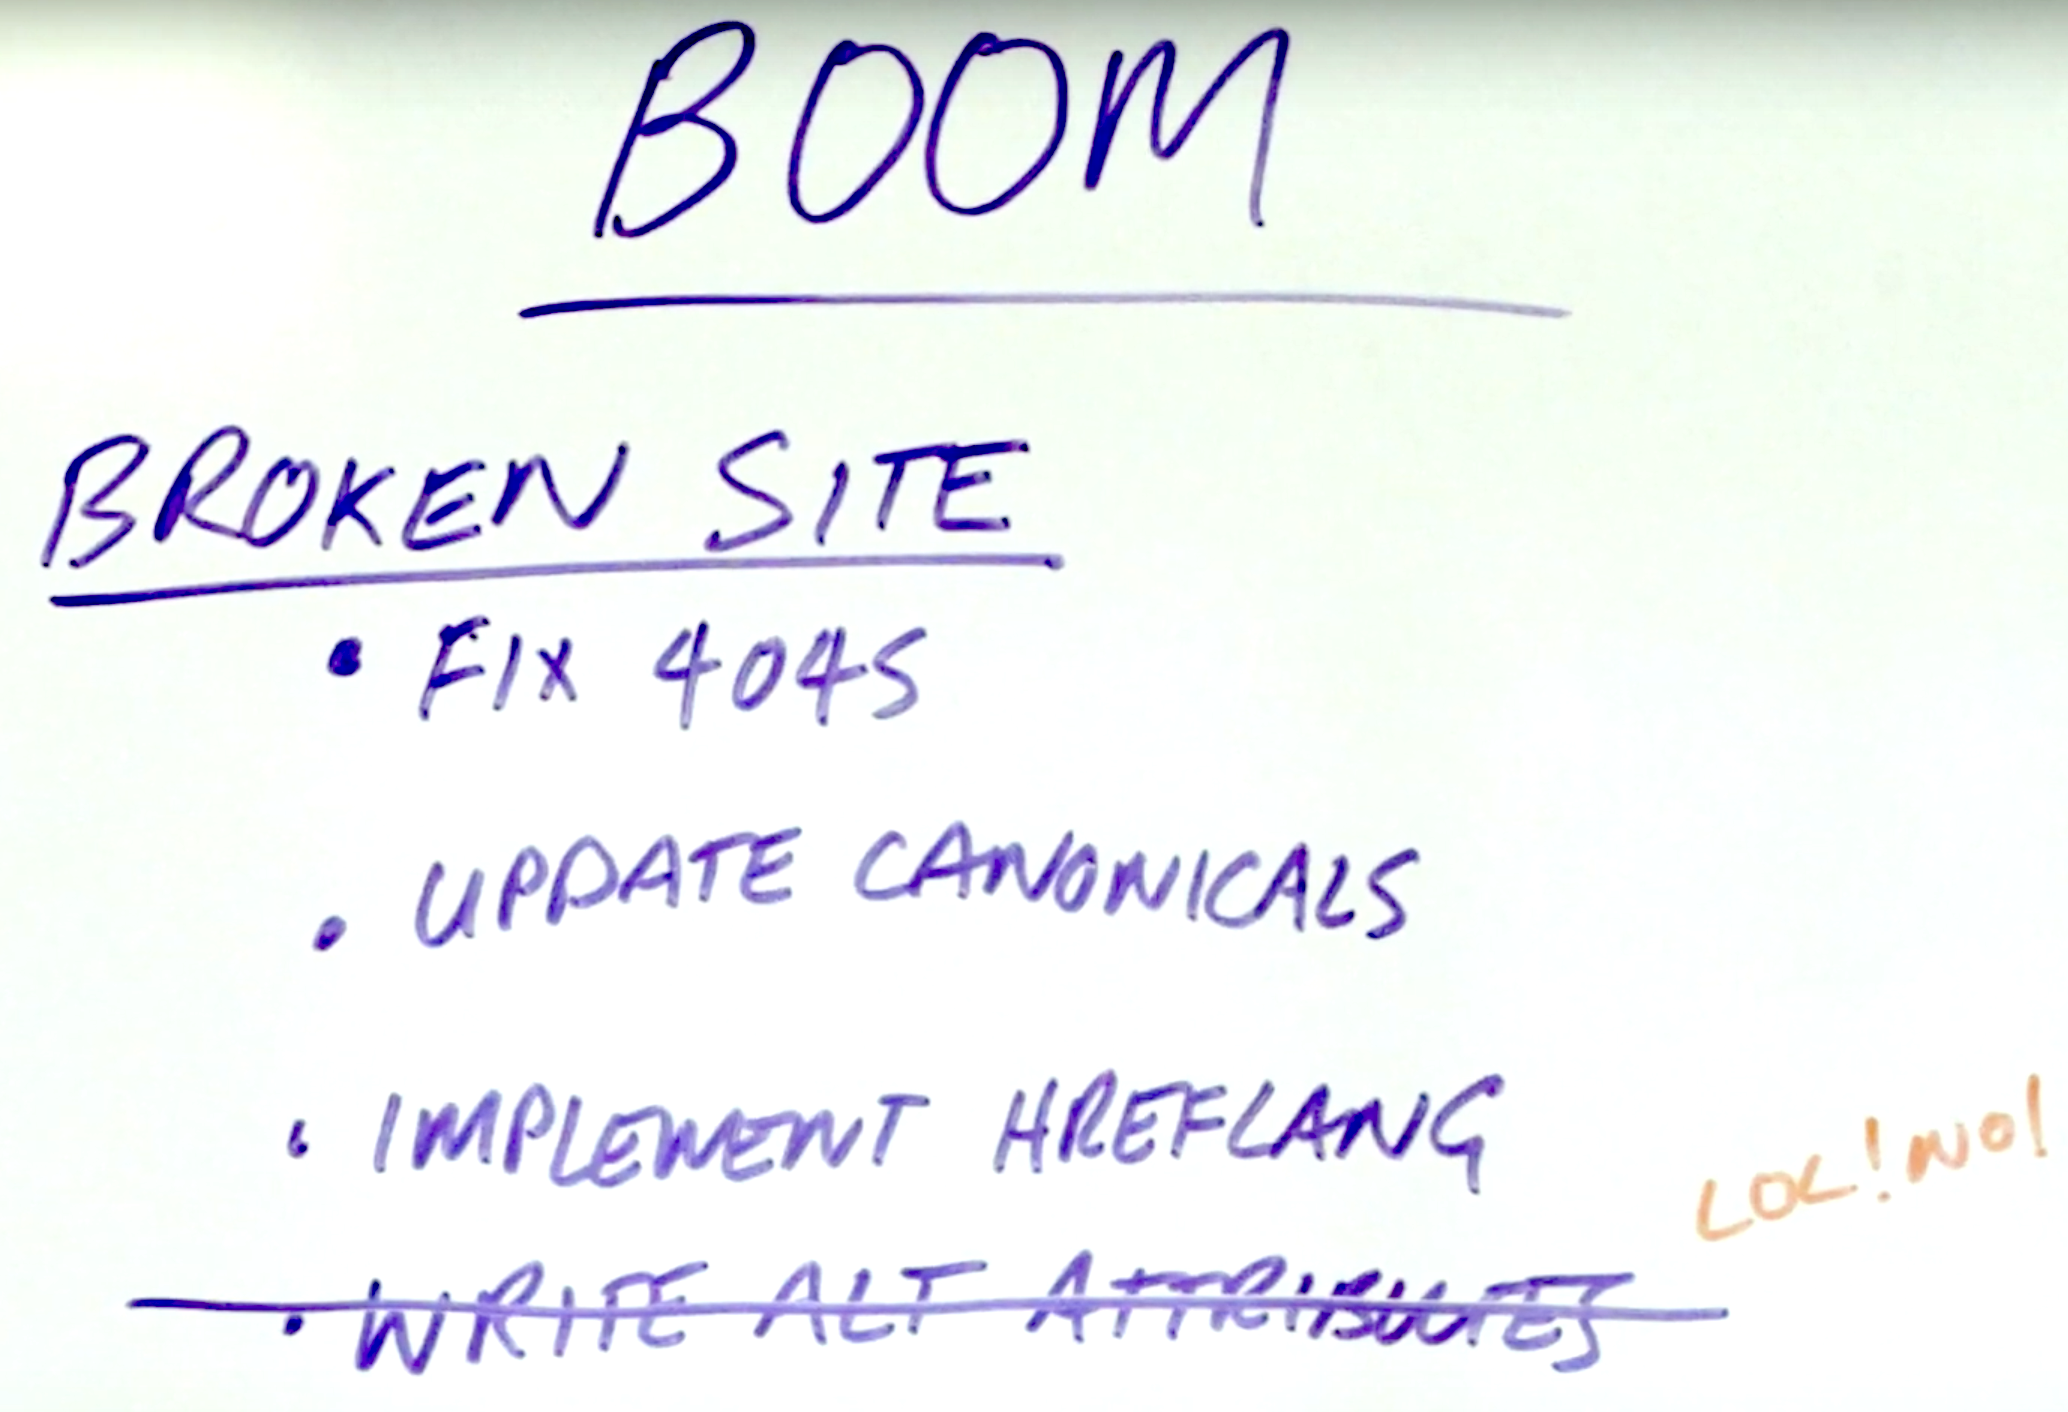 BOOM
BROKEN SITE
• FIX 404S
• UPDATE CANONICALS
• IMPLEMENT HREFLANG
LOL! NO!
• WRITE ALT ATTRIBUTES